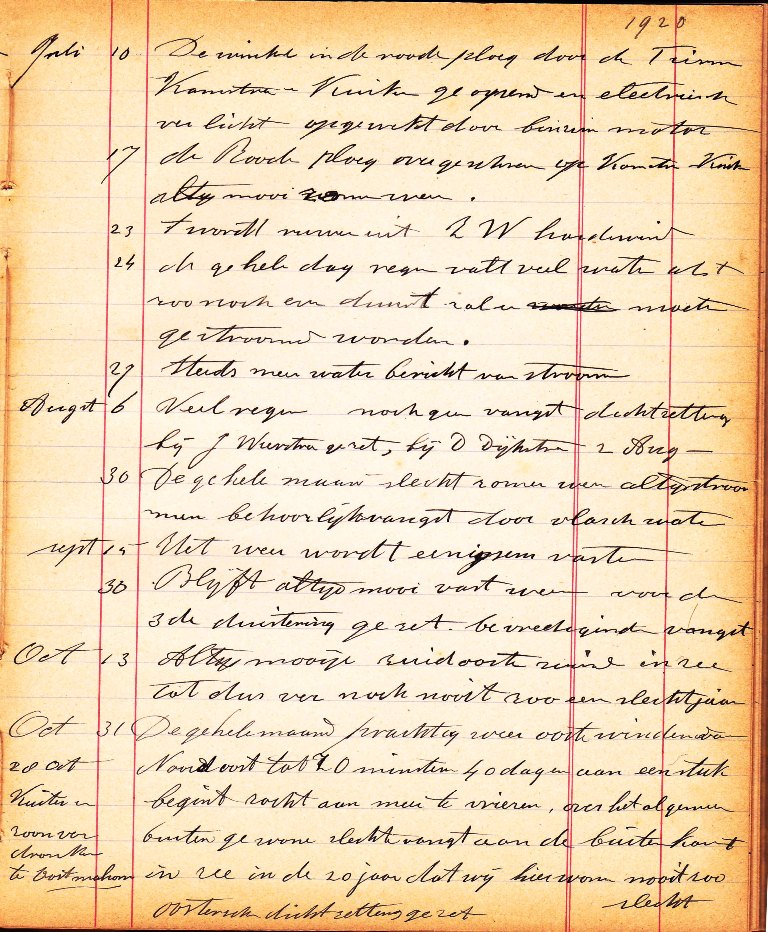 1920
Juli 10 De winkel in de roode ploeg door de Firma
Kamstra - Kuiken geopend en electrisch
verlicht opgewekt door benzin motor
17 de Roode ploeg overgeschreven op Kamstra Kuik
altijd mooi zomer weer.
23 't wordt ruw uit Z W harde wind
24 de geheele dag regen valt veel water als t
zoo noch een duurt zal er moeten
gestroomd worden.
27 steeds meer water bericht van stroomen
Augst 6 Veel regen noch geen vangst dichtzetting
bij J Wierstra gezet, bij D Dijkstra 2 Aug -
30 De gehele maand slecht zomer weer altijd stroo
men behoorlijk vangst door vlasch water
sept 15 Het weer wordt eenigsens vaster
30 Blijft altijd mooi vast weer voor den
3de duistering gezet. bevredigende vangst
Oct 13 Altijd mooije zuidooste wind in zee
tot dus ver noch nooit zoo een slecht jaar
Oct 31 De gehele maand prachtig weer ooste winden van
28 Oct Noord oost tot Z O minsten 40 dagen aan een stuk
Kuiter en begint zacht aan mee te vriezen, over het algemeen
zoon ver buiten gewone slechte vangst aan de buiten kant
dronken
te Oostmahorn in zee in de 20 jaar dat wij hier wonen nooit zoo
slecht
oostersch dichtzetting gezet